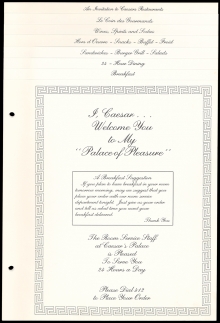 An Invitation to Caesars Restaurants
Le Coin des Gourmands
Wines, Spirits and Sodas
Hors d'Oeuvre - Snacks - Buffet - Fruit
Sandwiches - Burger Grill - Salads
24 - Hour Dining
Breakfast
I, Caesar . . .
Welcome You
to My
"Palace of Pleasure"
A Breakfast Suggestion
If you plan to have breakfast in your room
tomorrow morning, may we suggest that you
place your order with our room service
department tonight. Just give us your order
and tell us what time you want your
breakfast delivered.
Thank You
The Room Service Staff
at Caesar's Palace
is Pleased
To Serve You
24 Hours a Day
Please Dial 512
to Place Your Order